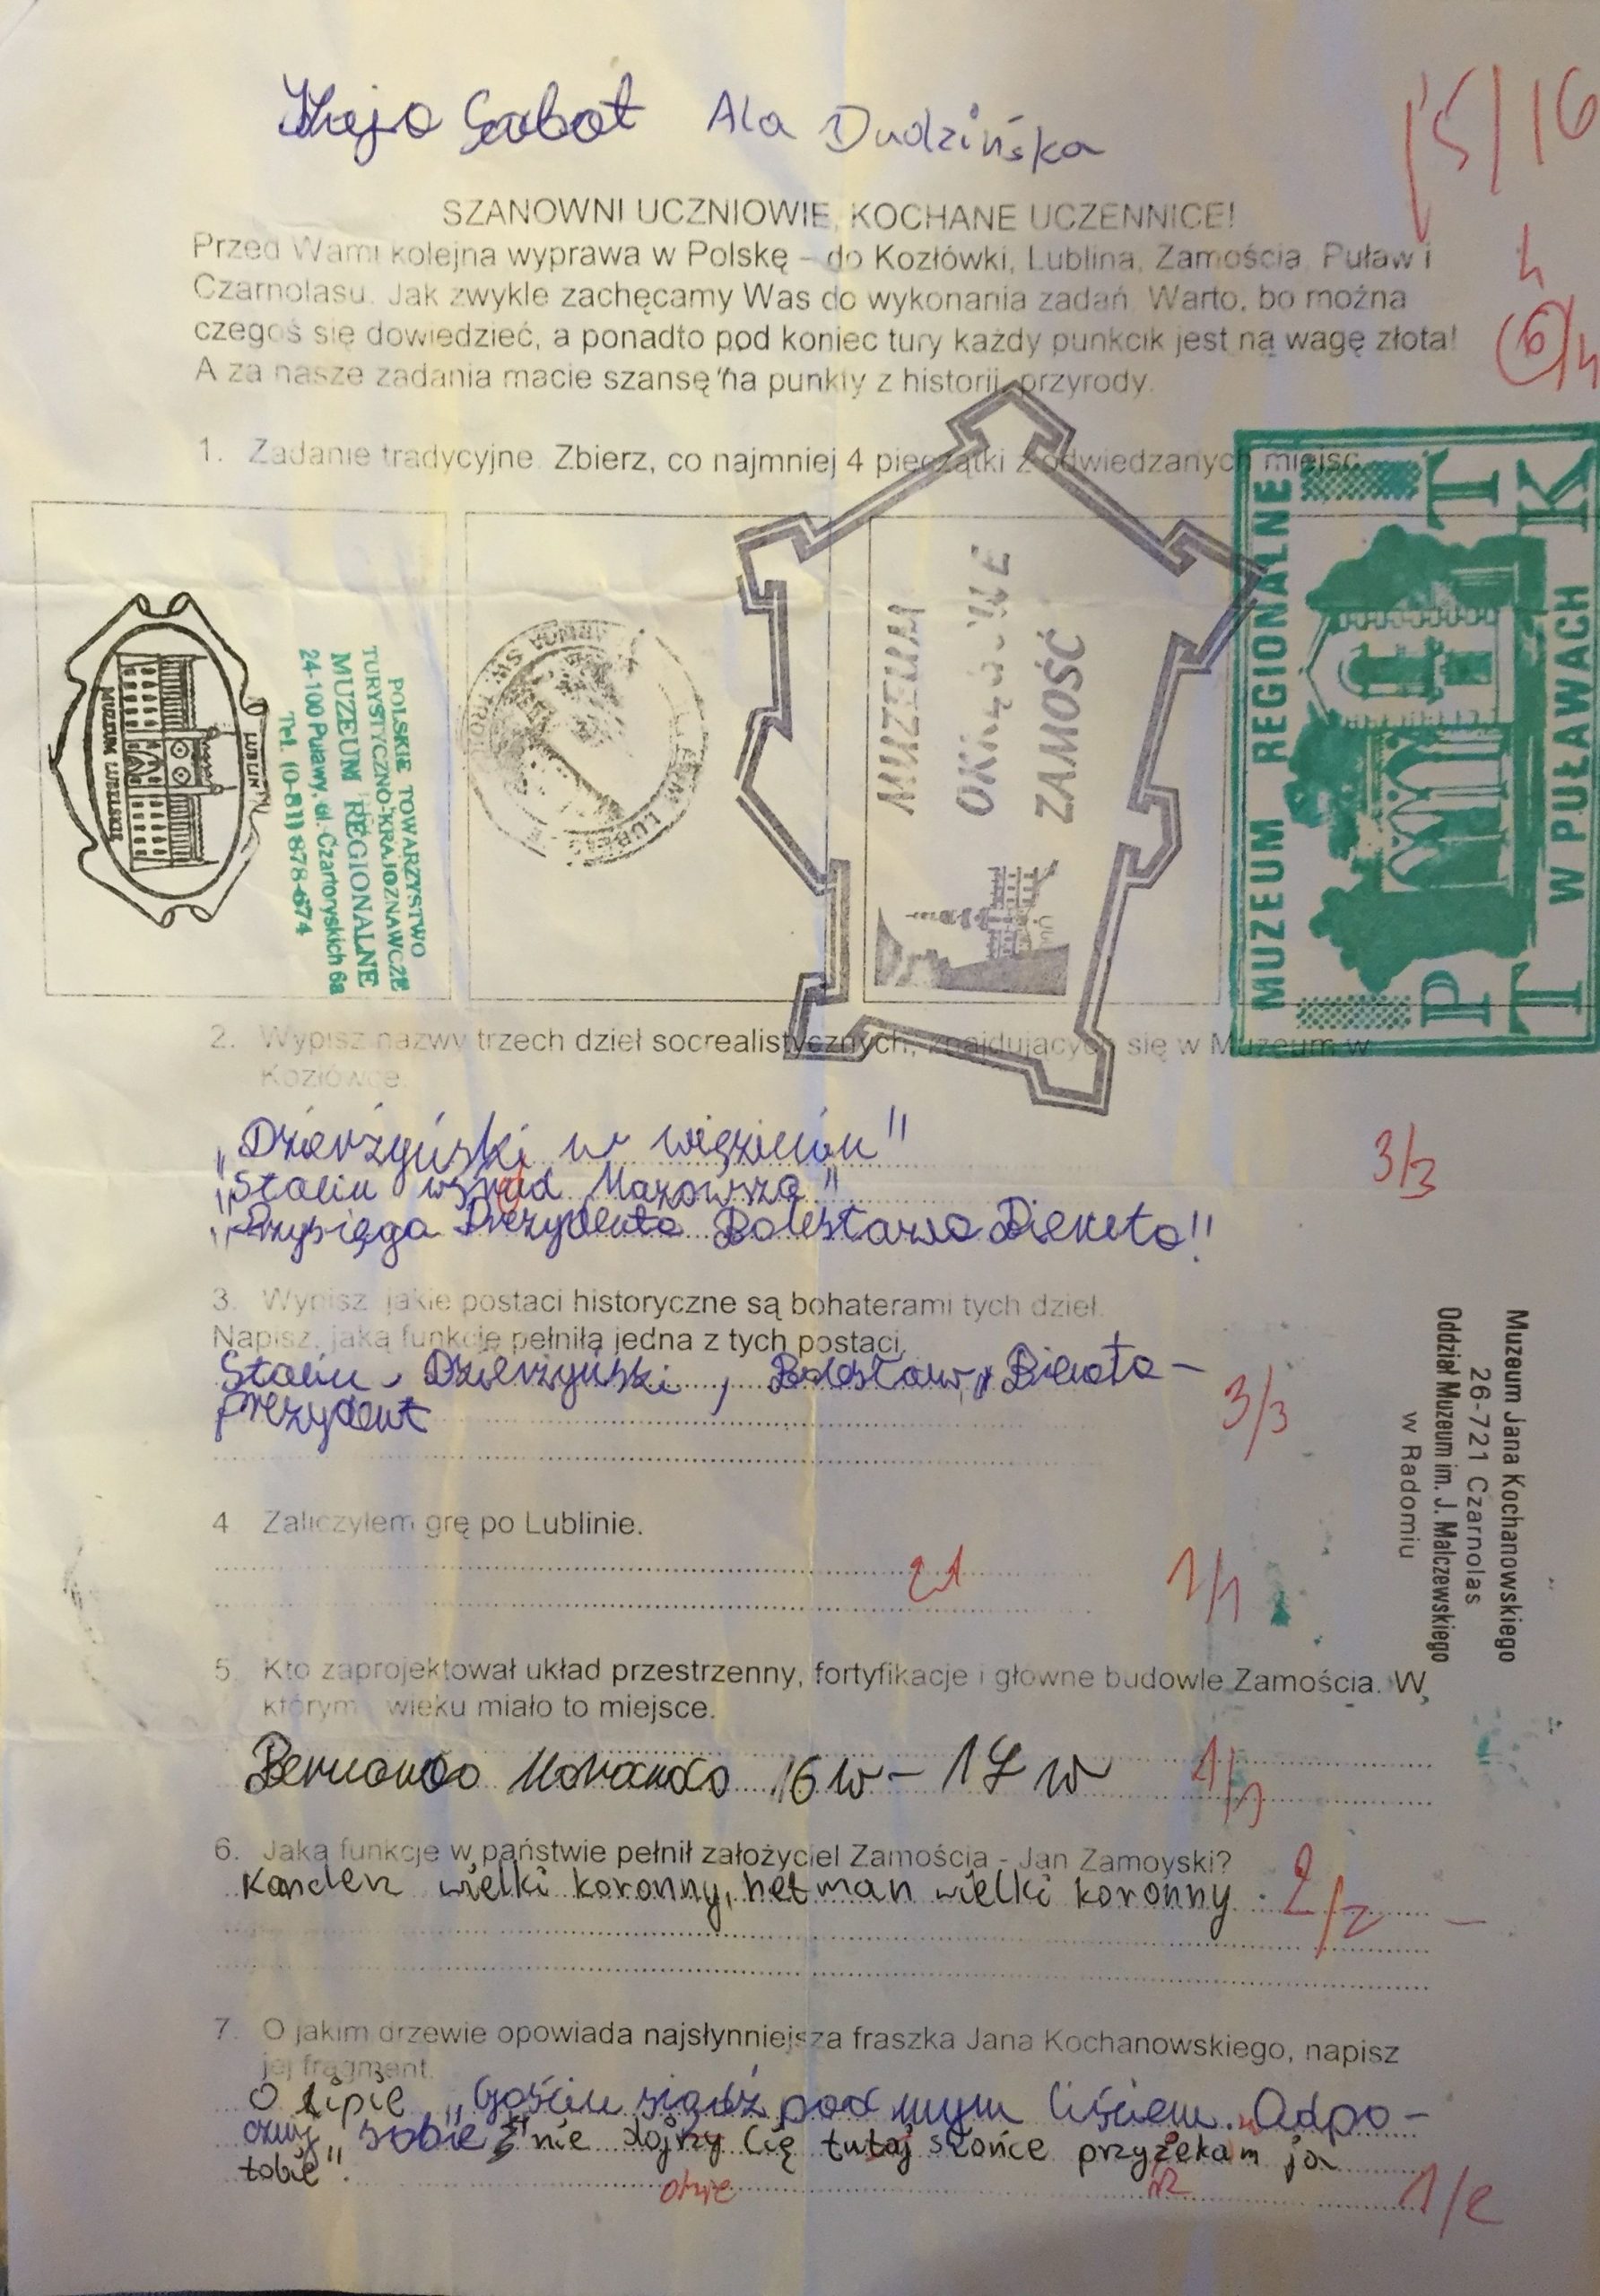 Kaja Sabot Ala Dudzińska
15/16
SZANOWNI UCZNIOWIE, KOCHANE UCZENNICE!
Przed Wami kolejna wyprawa w Polskę – do Kozłówki, Lublina, Zamościa, Puław i
Czarnolasu. Jak zwykle zachęcamy Was do wykonania zadań. Warto, bo można
czegoś się dowiedzieć, a ponadto pod koniec tury każdy punkcik jest na wagę złota!
A za nasze zadania macie szansę na punkty z historii, przyrody.
6/4
1. Zadanie tradycyjne. Zbierz, co najmniej 4 pieczątki z odwiedzanych miejsc.
LUBLIN
MUZEUM LUBELSKIE
POLSKIE TOWARZYSTWO
TURYSTYCZNO-KRAJOZNAWCZE
MUZEUM REGIONALNE
24-100 Puławy, ul. Czartoryskich 6a
Tel. (0-81) 878-674
MUZEUM
ZAMOŚĆ
MUZEUM REGIONALNE
P T T K
W PUŁAWACH
2. Wypisz nazwy trzech dzieł socrealistycznych, znajdujących się w Muzeum w
Kozłówce.
„Dzierżyński w więzieniu"
„Stalin wśród Mazowsza"
3/3
„Przysięga Prezydenta Bolesława Bieruta"
3. Wypisz, jakie postaci historyczne są bohaterami tych dzieł.
Napisz, jaką funkcję pełniła jedna z tych postaci.
Stalin, Dzierżyński, Bolesław Bieruta –
prezydent
3/3
Muzeum Jana Kochanowskiego
26-721 Czarnolas
Oddział Muzeum im. J. Malczewskiego
w Radomiu
4 Zaliczyłem grę po Lublinie.
1/1
5. Kto zaprojektował układ przestrzenny, fortyfikacje i główne budowle Zamościa. W
którym wieku miało to miejsce.
Bernando Morando 16 w – 17 w
1/1
6. Jaką funkcje w państwie pełnił założyciel Zamościa - Jan Zamoyski?
Kanclerz wielki koronny, hetman wielki koronny.
2/2
7. O jakim drzewie opowiada najsłynniejsza fraszka Jana Kochanowskiego, napisz
jej fragment.
O lipie „Gościu siądź pod mym liściem. Odpo-
cznij sobie nie dojrzy Cię tutaj słońce przyżekam ja
tobie".
rz
1/2